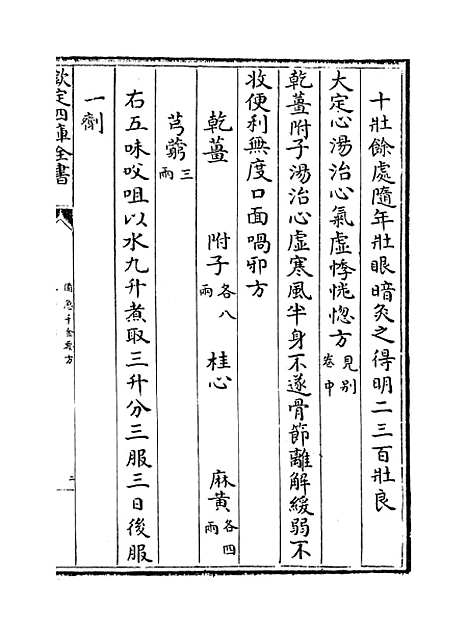 十壯餘處隨年壯眼暗灸之得明二三百壯良
大定心湯治心氣虛悸恍惚方見別卷中
乾薑附子湯治心虛寒風半身不遂骨節離解緩弱不
收便利無度口面喎邪方
乾薑 附子各八兩 桂心 麻黄各四兩
芎藭三兩
右五味㕮咀以水九升煮取三升分三服三日後服
一劑
欽定四庫全書
備急千金要方